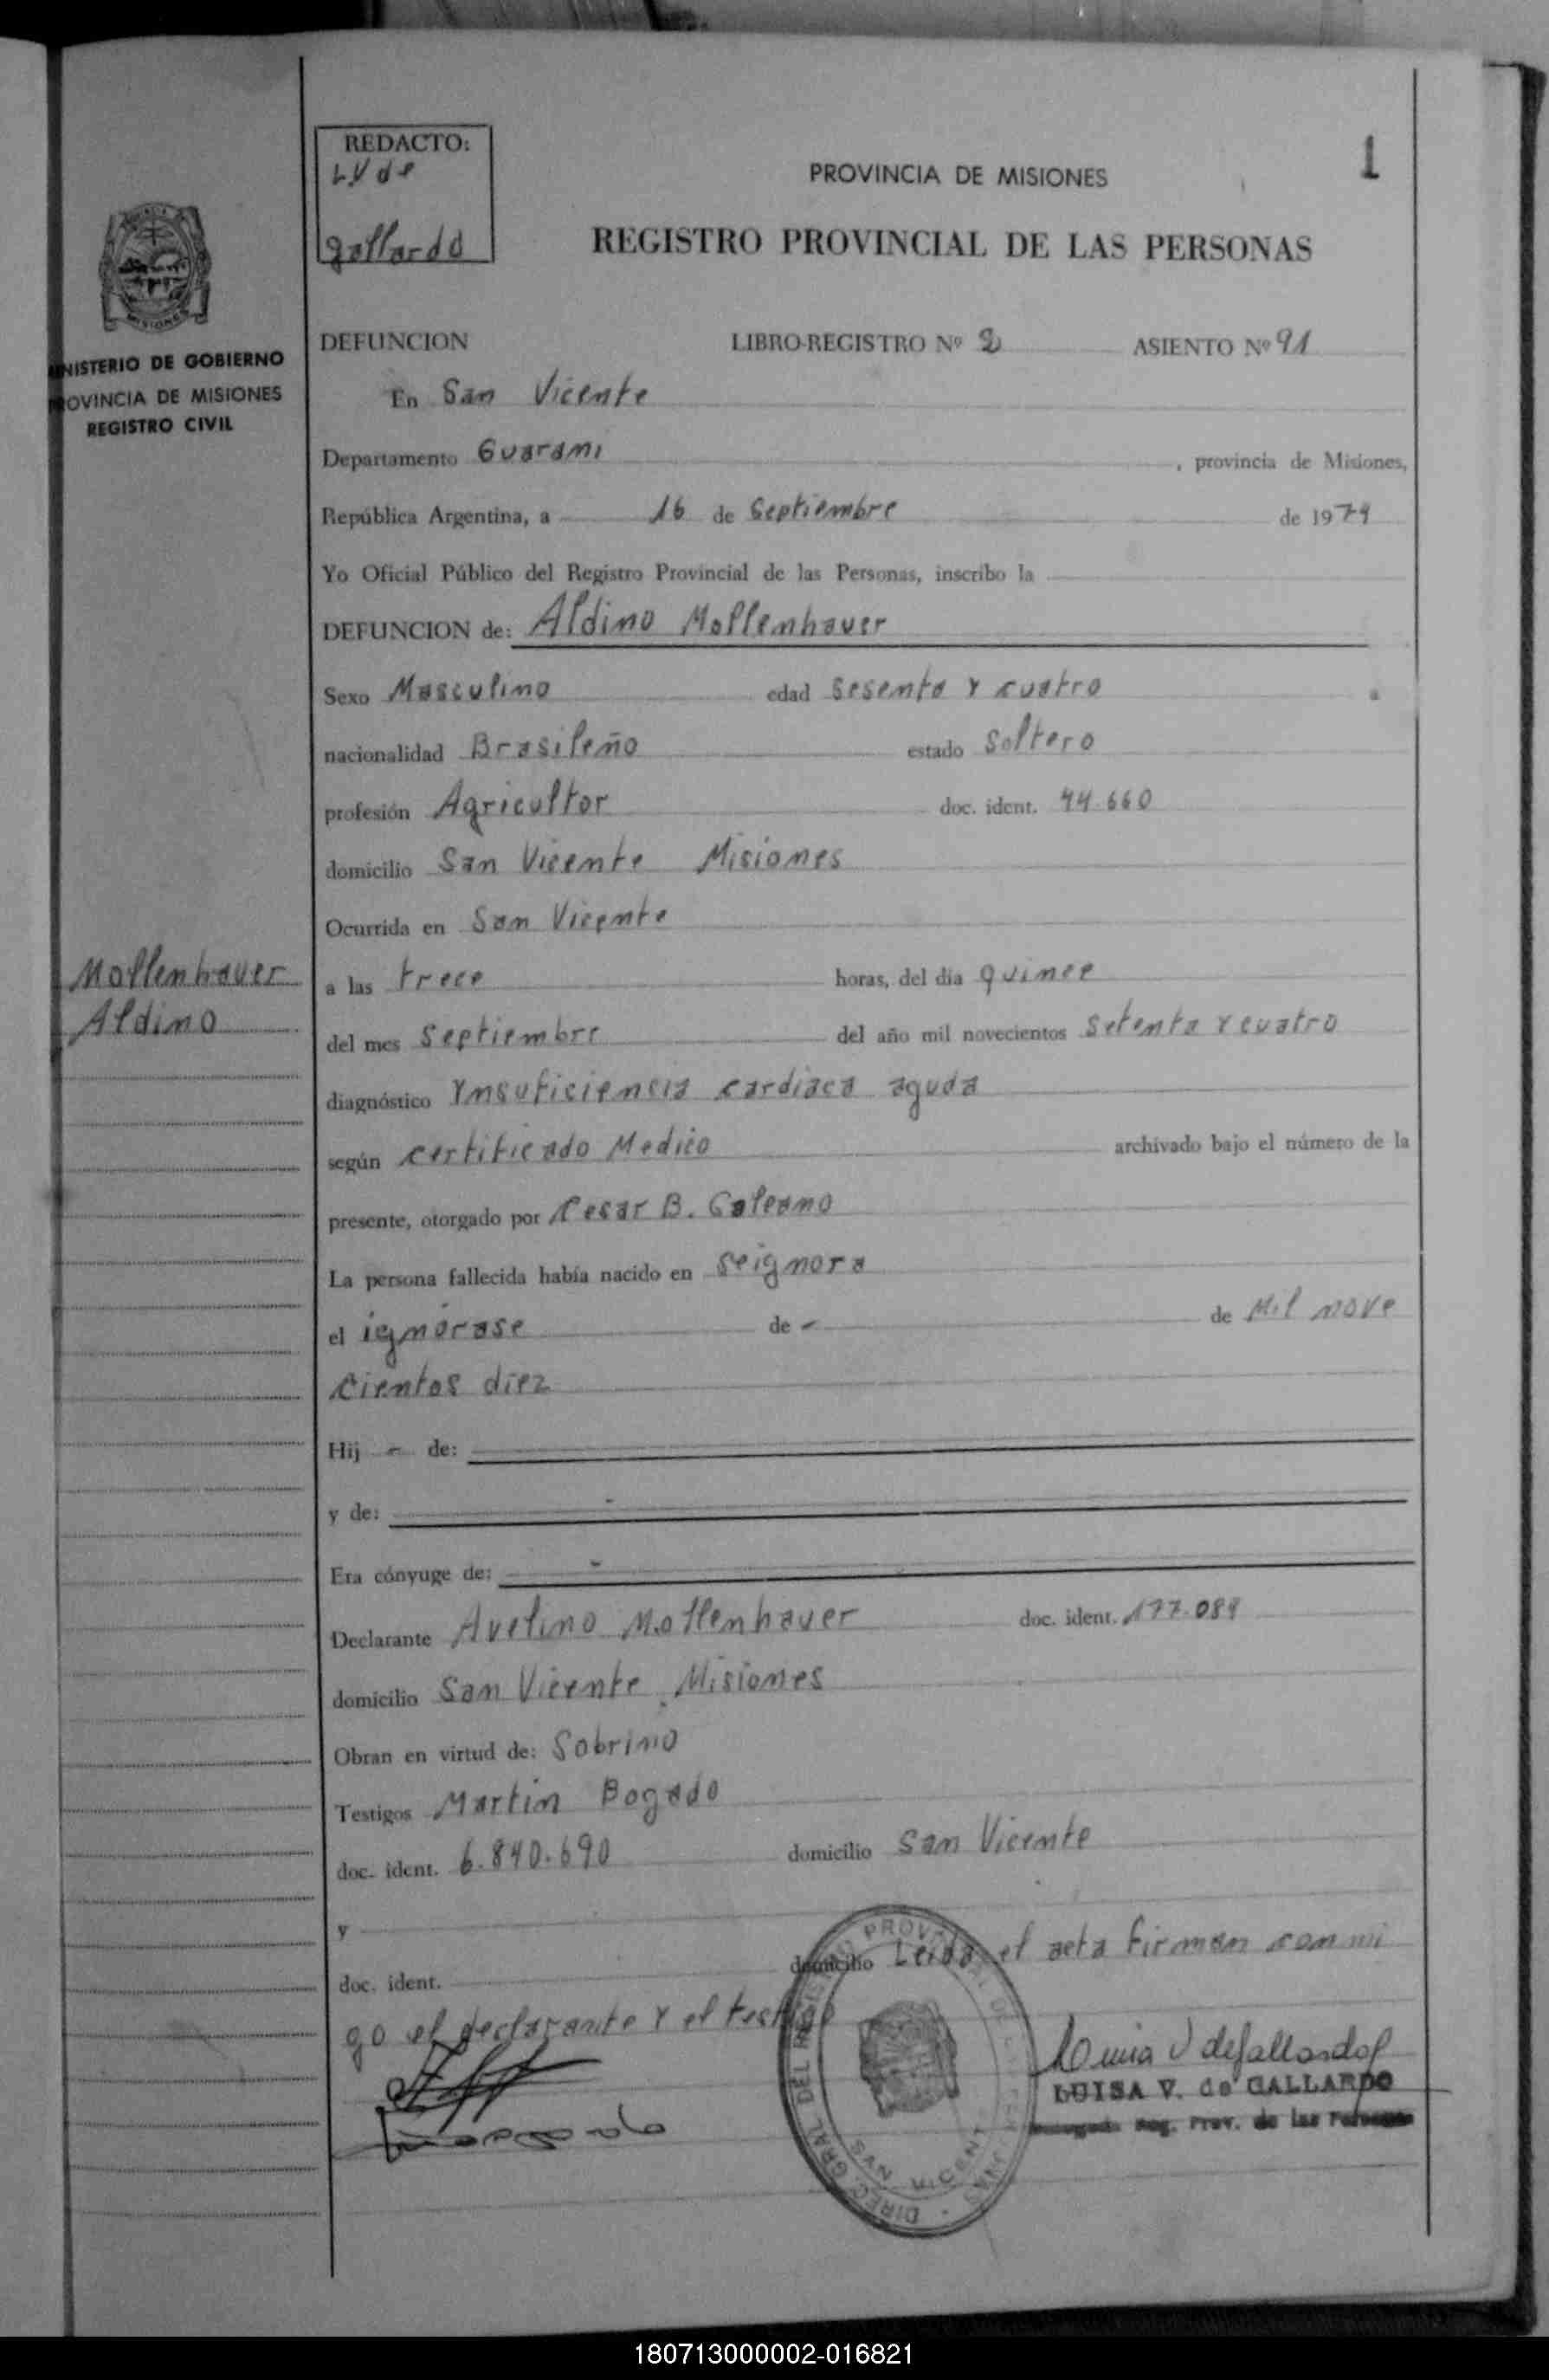 REDACTO:
L.V de
gallardo
PROVINCIA DE MISIONES
1
REGISTRO PROVINCIAL DE LAS PERSONAS
MISIONES
NISTERIO DE GOBIERNO
ROVINCIA DE MISIONES
REGISTRO CIVIL
DEFUNCION LIBRO-REGISTRO Nº 2 ASIENTO Nº 91
En San Vicente
Departamento Guarani , provincia de Misiones,
República Argentina, a 16 de Septiembre de 1974
Yo Oficial Público del Registro Provincial de las Personas, inscribo la
DEFUNCION de: Aldino Mollenhauer
Sexo Masculino edad sesenta y cuatro
nacionalidad Brasileño estado Soltero
profesión Agricultor doc. ident. 44.660
domicilio San Vicente Misiones
Ocurrida en San Vicente
Mollenhauer
Aldino
a las trece horas, del día quince
del mes Septiembre del año mil novecientos setenta y cuatro
diagnóstico Ynsuficiencia cardiaca aguda
según certificado Medico archivado bajo el número de la
presente, otorgado por Cesar B. Galeano
La persona fallecida había nacido en seignora
el ignórase de - de Mil nove
cientos diez
Hij - de:
y de: -
Era cónyuge de: -
Declarante Avelino Mollenhauer doc. ident. 177.084
domicilio San Vicente Misiones
Obran en virtud de: Sobrino
Testigos Martin Bogado
doc. ident. 6.840.690 domicilio San Vicente
y
doc. ident. domicilio Leida el acta firman con mi
go el declarante y el testigo
DIREC. GRAL. DEL REGISTRO PROVINCIAL DE LAS PERSONAS
SAN VICENTE
LUISA V. de GALLARDO
Delegada Reg. Prov. de las Personas
180713000002-016821